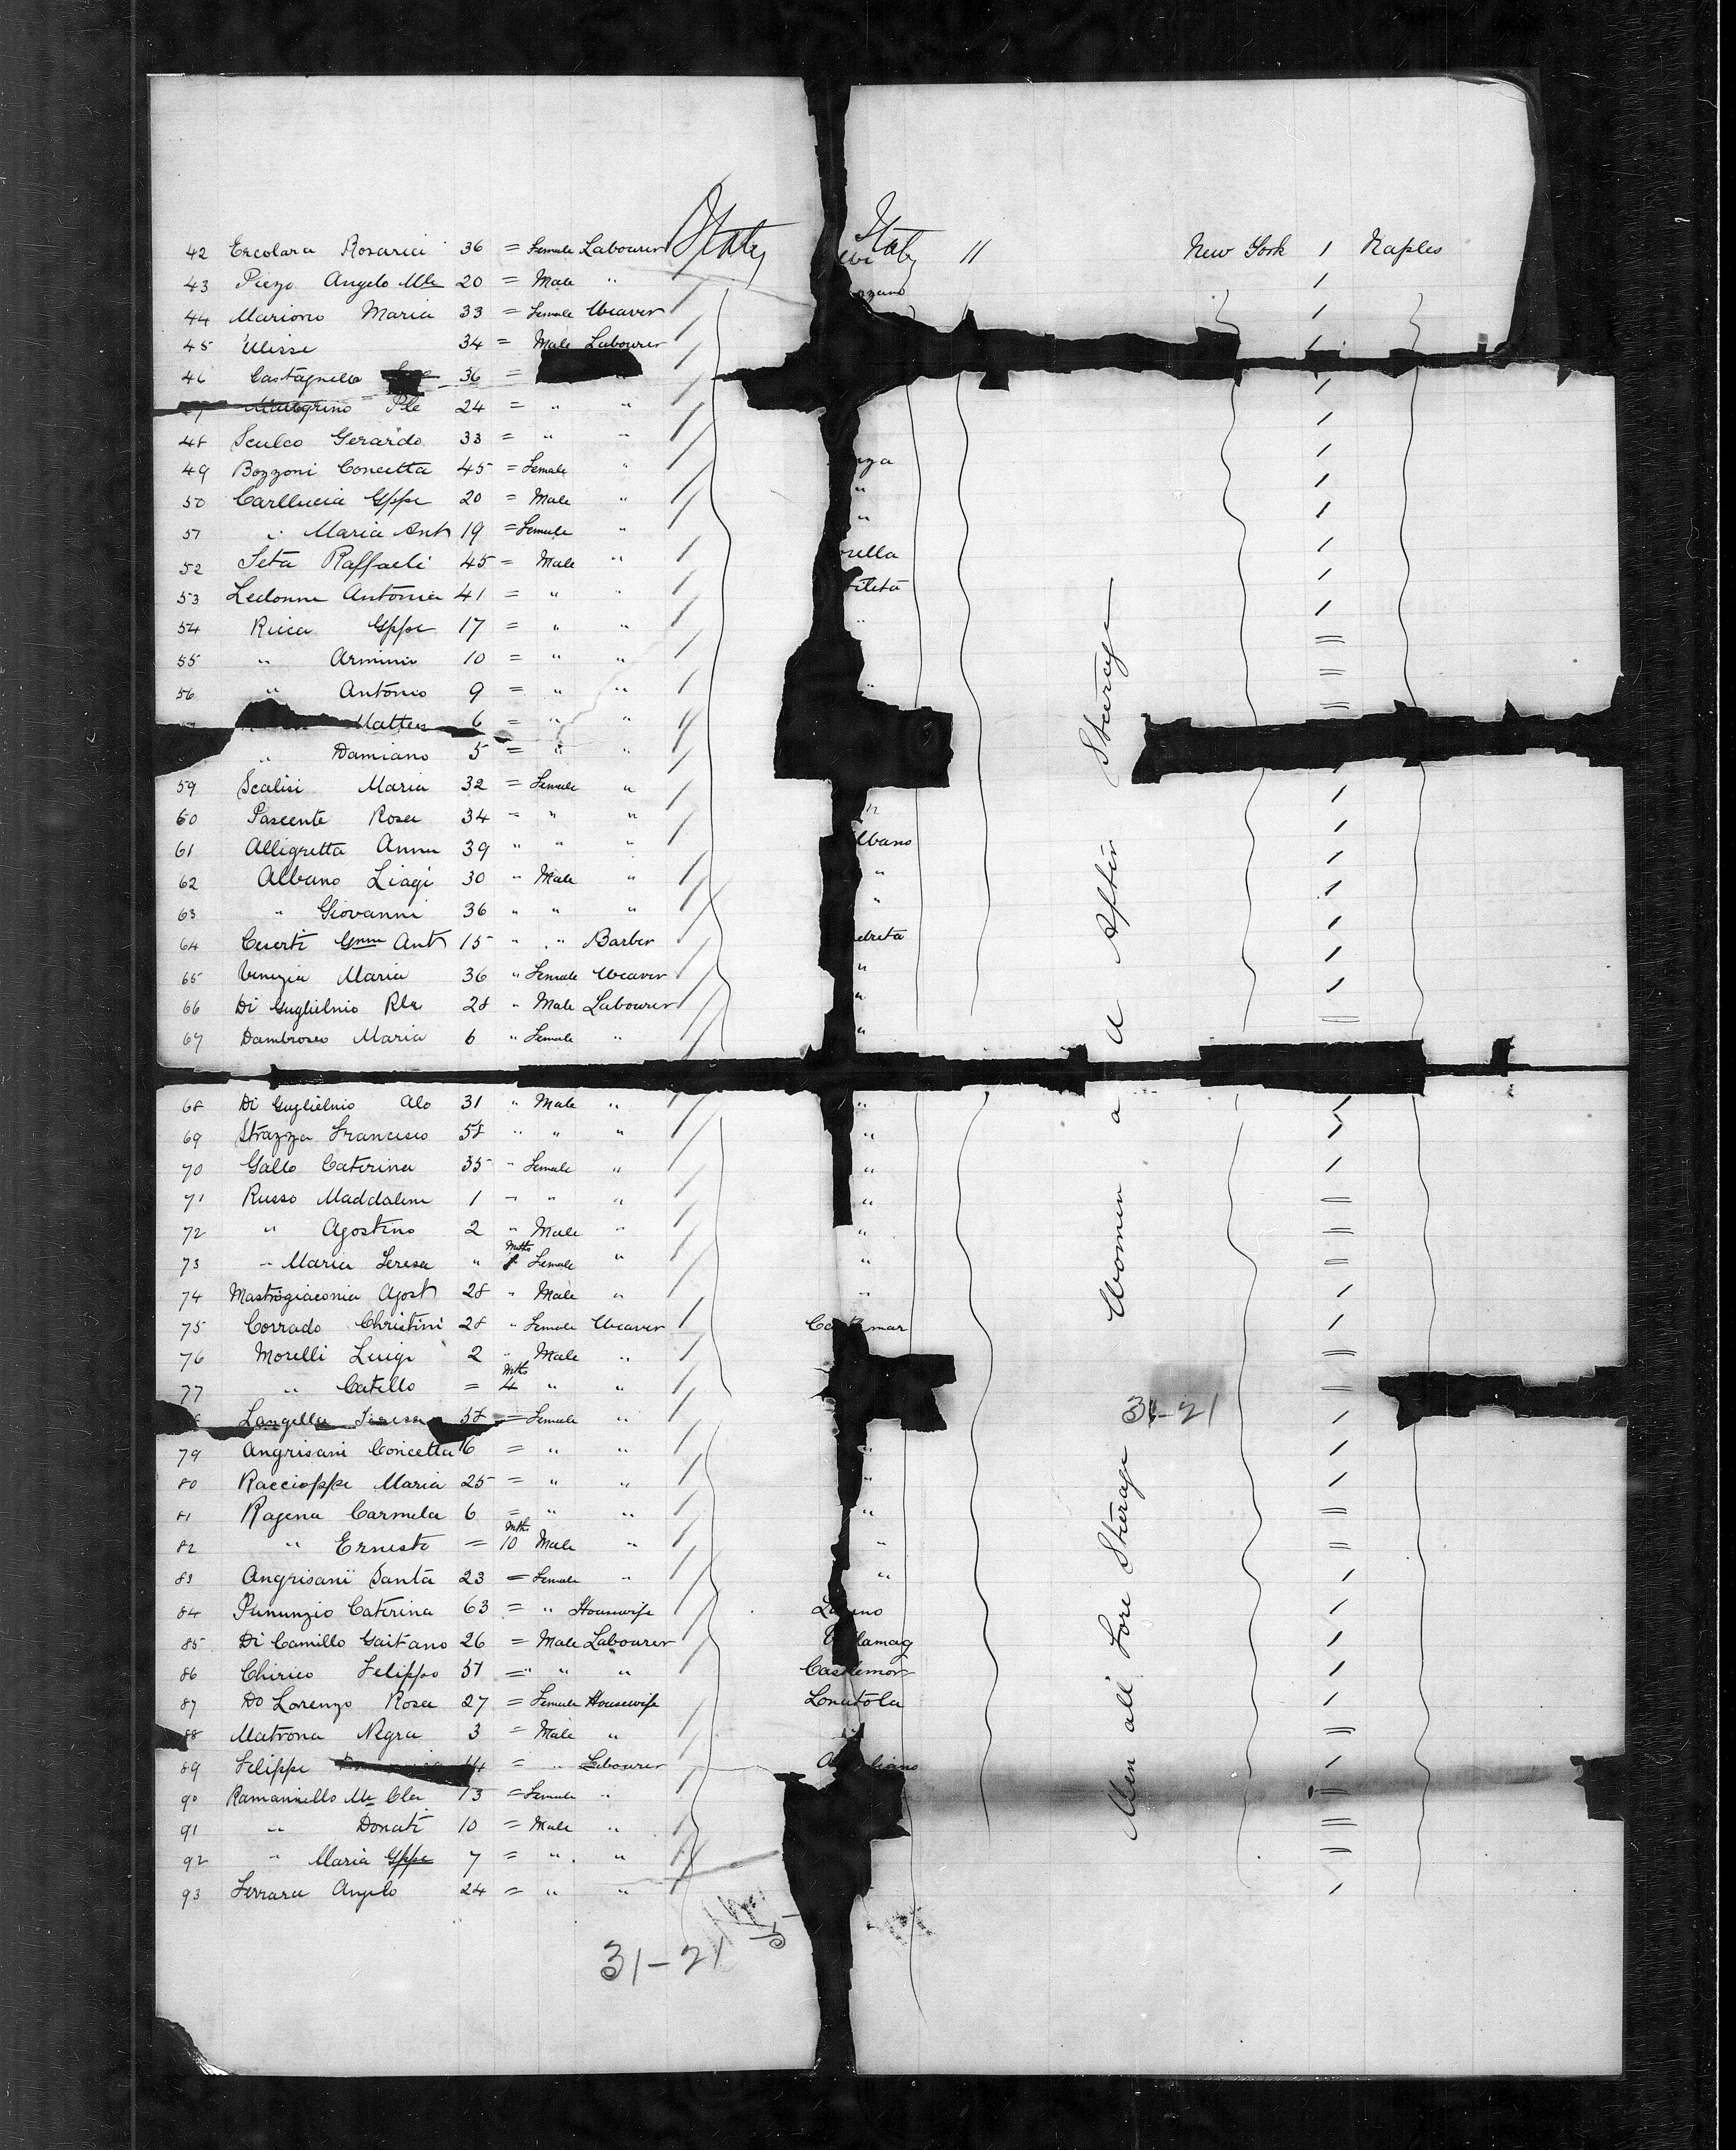 42 Ercolara Rosaria 36 = Female Labourer Italy Italy 11 New York 1 Naples
43 Piezo Angelo Mle 20 = Male " zzano
44 Mariono Maria 33 = Female Weaver
45 Ulisse 34 = Male Labourer
46 Castagnello 36 = "
Ple 24 = " "
48 Sculco Gerardo 33 = " "
49 Bozzoni Concetta 45 = Female " nza
50 Carllucia Gppe 20 = Male " "
51 " Maria Ant 19 = Female " "
52 Seta Raffaeli 45 = Male " rella
53 Ledonne Antonia 41 = " " fileta
54 Ricca Gppe 17 = " " "
55 " Arminio 10 = " "
56 " Antonio 9 = " " "
Matteo 6 = " "
" Damiano 5 = " "
59 Scalisi Maria 32 = Female "
60 Pascente Rosa 34 = " " "
61 Alligretta Anna 39 " " " lbano
62 Albano Liagi 30 " Male " "
63 " Giovanni 36 " " " "
64 Cuerti Gnni Ant 15 " " Barber dreta
65 Venezia Maria 36 " Female Weaver "
66 Di Guglielmo Rla 28 " Male Labourer "
67 Dambrosio Maria 6 " Female " "
68 Di Guglielmo Alo 31 " Male " "
69 Strazza Francisco 58 " " " "
70 Gallo Caterina 35 " Female " "
71 Russo Maddalena 1 " " " "
72 " Agostino 2 " Male " "
73 " Maria Teresa " Mths Female " "
74 Mastrogiacomia Agost 28 " Male " "
75 Corrado Christini 28 " Female Weaver Ca mar
76 Morelli Luigi 2 " Male "
77 " Catello = Mths 4 " "
Langella Teresa 38 = Female "
79 Angrisani Concetta 16 = " " "
80 Raccioppi Maria 25 = " " "
81 Ragena Carmela 6 = " " "
82 " Ernesto = Mth 10 Male " "
83 Angrisani Santa 23 = Female " "
84 Pununzio Caterina 63 = " Housewife L no
85 Di Camillo Gaitano 26 = Male Labourer lamag
86 Chirico Felippo 51 = " " " Castlemar
87 Do Lorenzo Rosa 27 = Female Housewife Lonatola
88 Matrona Negra 3 = Male "
89 Felippe 44 = " Labourer A liano
90 Ramanniello Ma Cla 13 = Female "
91 " Donati 10 = Male "
92 " Maria Gppe 7 = " "
93 Ferrara Angelo 24 = " "
Men all Fore Sturage Women a a After Sturage
31-21
31-21